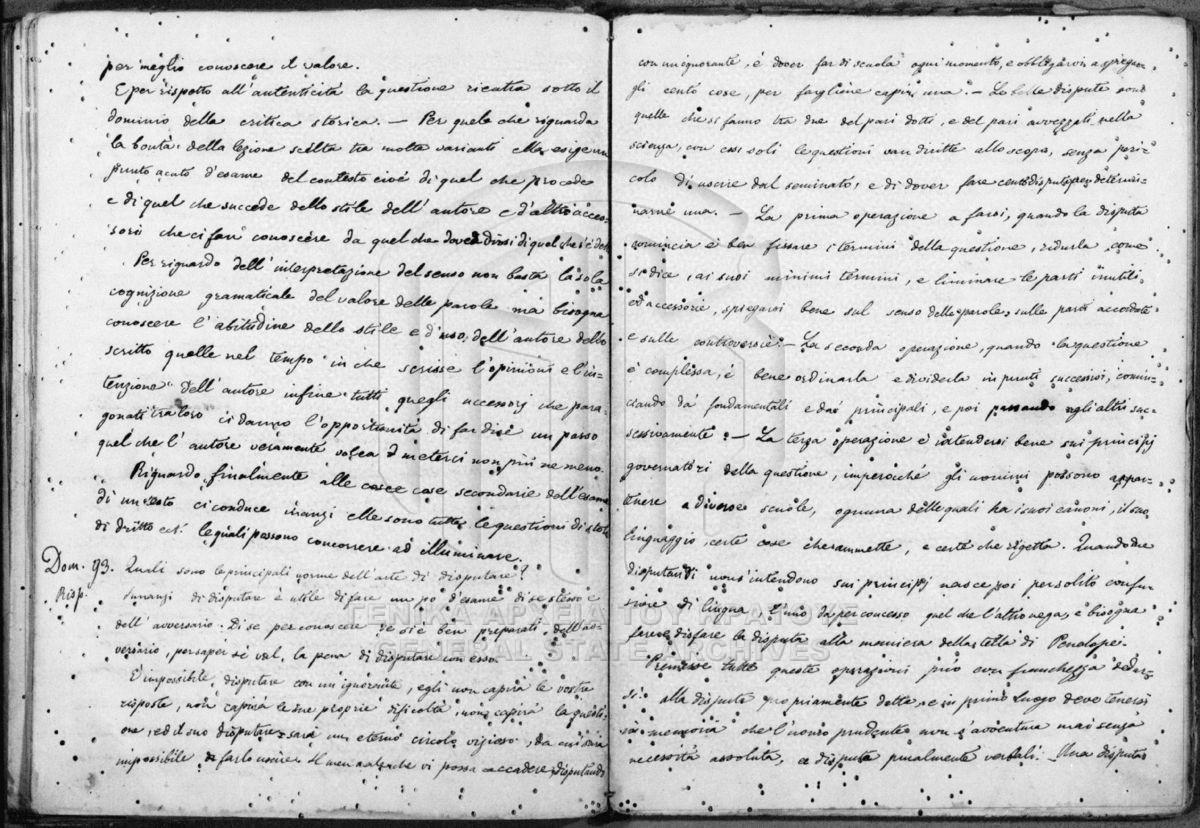 per meglio conoscere il valore.
E per rispetto all'autenticità la questione ricatra sotto il
dominio della critica storica. — Per quele che riguarda
la bontà della lezione scelta tra molte varianti ella esige un
punto acuto d'esame del contesto cioè di quel che precede
e di quel che succede dello stile dell'autore e d'altri acces-
sorii che ci fan conoscere da quel che dovea dirsi di quel che s'è detto
Per riguardo dell'interpretazione del senso non basta la sola
cognizione gramaticale del valore delle parole ma bisogna
conoscere l'abitudine dello stile e d'uso dell'autore dello
scritto quelle nel tempo in che scrisse l'opinioni e l'in-
tenzione dell'autore infine tutti quegli accessorj che para-
gonati tra loro ci danno l'opportunità di far dire un passo
quel che l'autore veramente volea d metterci non più ne meno.
Riguardo finalmente alle cose secondarie dell'esame
di un testo ci conduce inanzi elle sono tutte le questioni di storia
di dritto ect. le quali possono concorrere ad illuminare.
Dom. 93. Quali sono le principali norme dell'arte di disputare?
Risp. Innanzi di disputare è utile di fare un po d'esame di se stesso e
dell'avversario. Di se per conoscere se si è ben preparati, dell'av-
versario, per saper se val la pena di disputare con esso.
È impossibile disputare con un ignorante, egli non capirà le vostre
risposte, non capirà le sue proprie dificoltà, non capirà la questi-
one, ed il suo disputare sarà un eterno circolo vizioso, da cui sarà
impossibile di farlo uscire. Il men male che vi possa accadere disputando
con un ignorante, è dover far di scuola ogni momento, e obbligarvi a spiegar-
gli cento cose, per fargliene capir una. — Le belle dispute sono
quelle che si fanno tra due del pari dotti, e del pari avvezzati nella
scienza, con essi soli le questioni van diritte allo scopo, senza peri-
colo di uscire dal seminato, e di dover fare cento dispute per determi-
narne una. — La prima operazione a farsi, quando la disputa
comincia è ben fissare i termini della questione, ridurla come
si dice, ai suoi minimi termini, e liminare le parti inutili
ed accessorie, spiegarsi bene sul senso delle parole, sulle parti accordate
e sulle controversie. — La seconda operazione, quando la questione
è complessa, è bene ordinarla e dividerla in punti successivi, comin-
ciando da' fondamentali e dai principali, e poi passando agli altri suc-
cessivamente. — La terza operazione è intendersi bene sui principj
governatori della questione, imperochè gli uomini possono appar-
tenere a diverse scuole, ognuna delle quali ha i suoi canoni, il suo
linguaggio, certe cose che ammette, e certe che rigetta. Quando due
disputandi non s'intendono sui principj nasce poi per solito confu-
sione di lingua. L'uno da per concesso quel che l'altro nega, e bisogna
fare e disfare la disputa alla maniera della tella di Penelope.
Premesse tutte queste operazioni può con franchezza ridur-
si alla disputa propriamente detta, e in primo luogo deve tenersi
in memoria che l'uomo prudente non s'avventura mai senza
necessità assoluta, a disputa puralmente verbali. Una disputa
ΓΕΝΙΚΑ ΑΡΧΕΙΑ ΤΟΥ ΚΡΑΤΟΥΣ
GENERAL STATE ARCHIVES